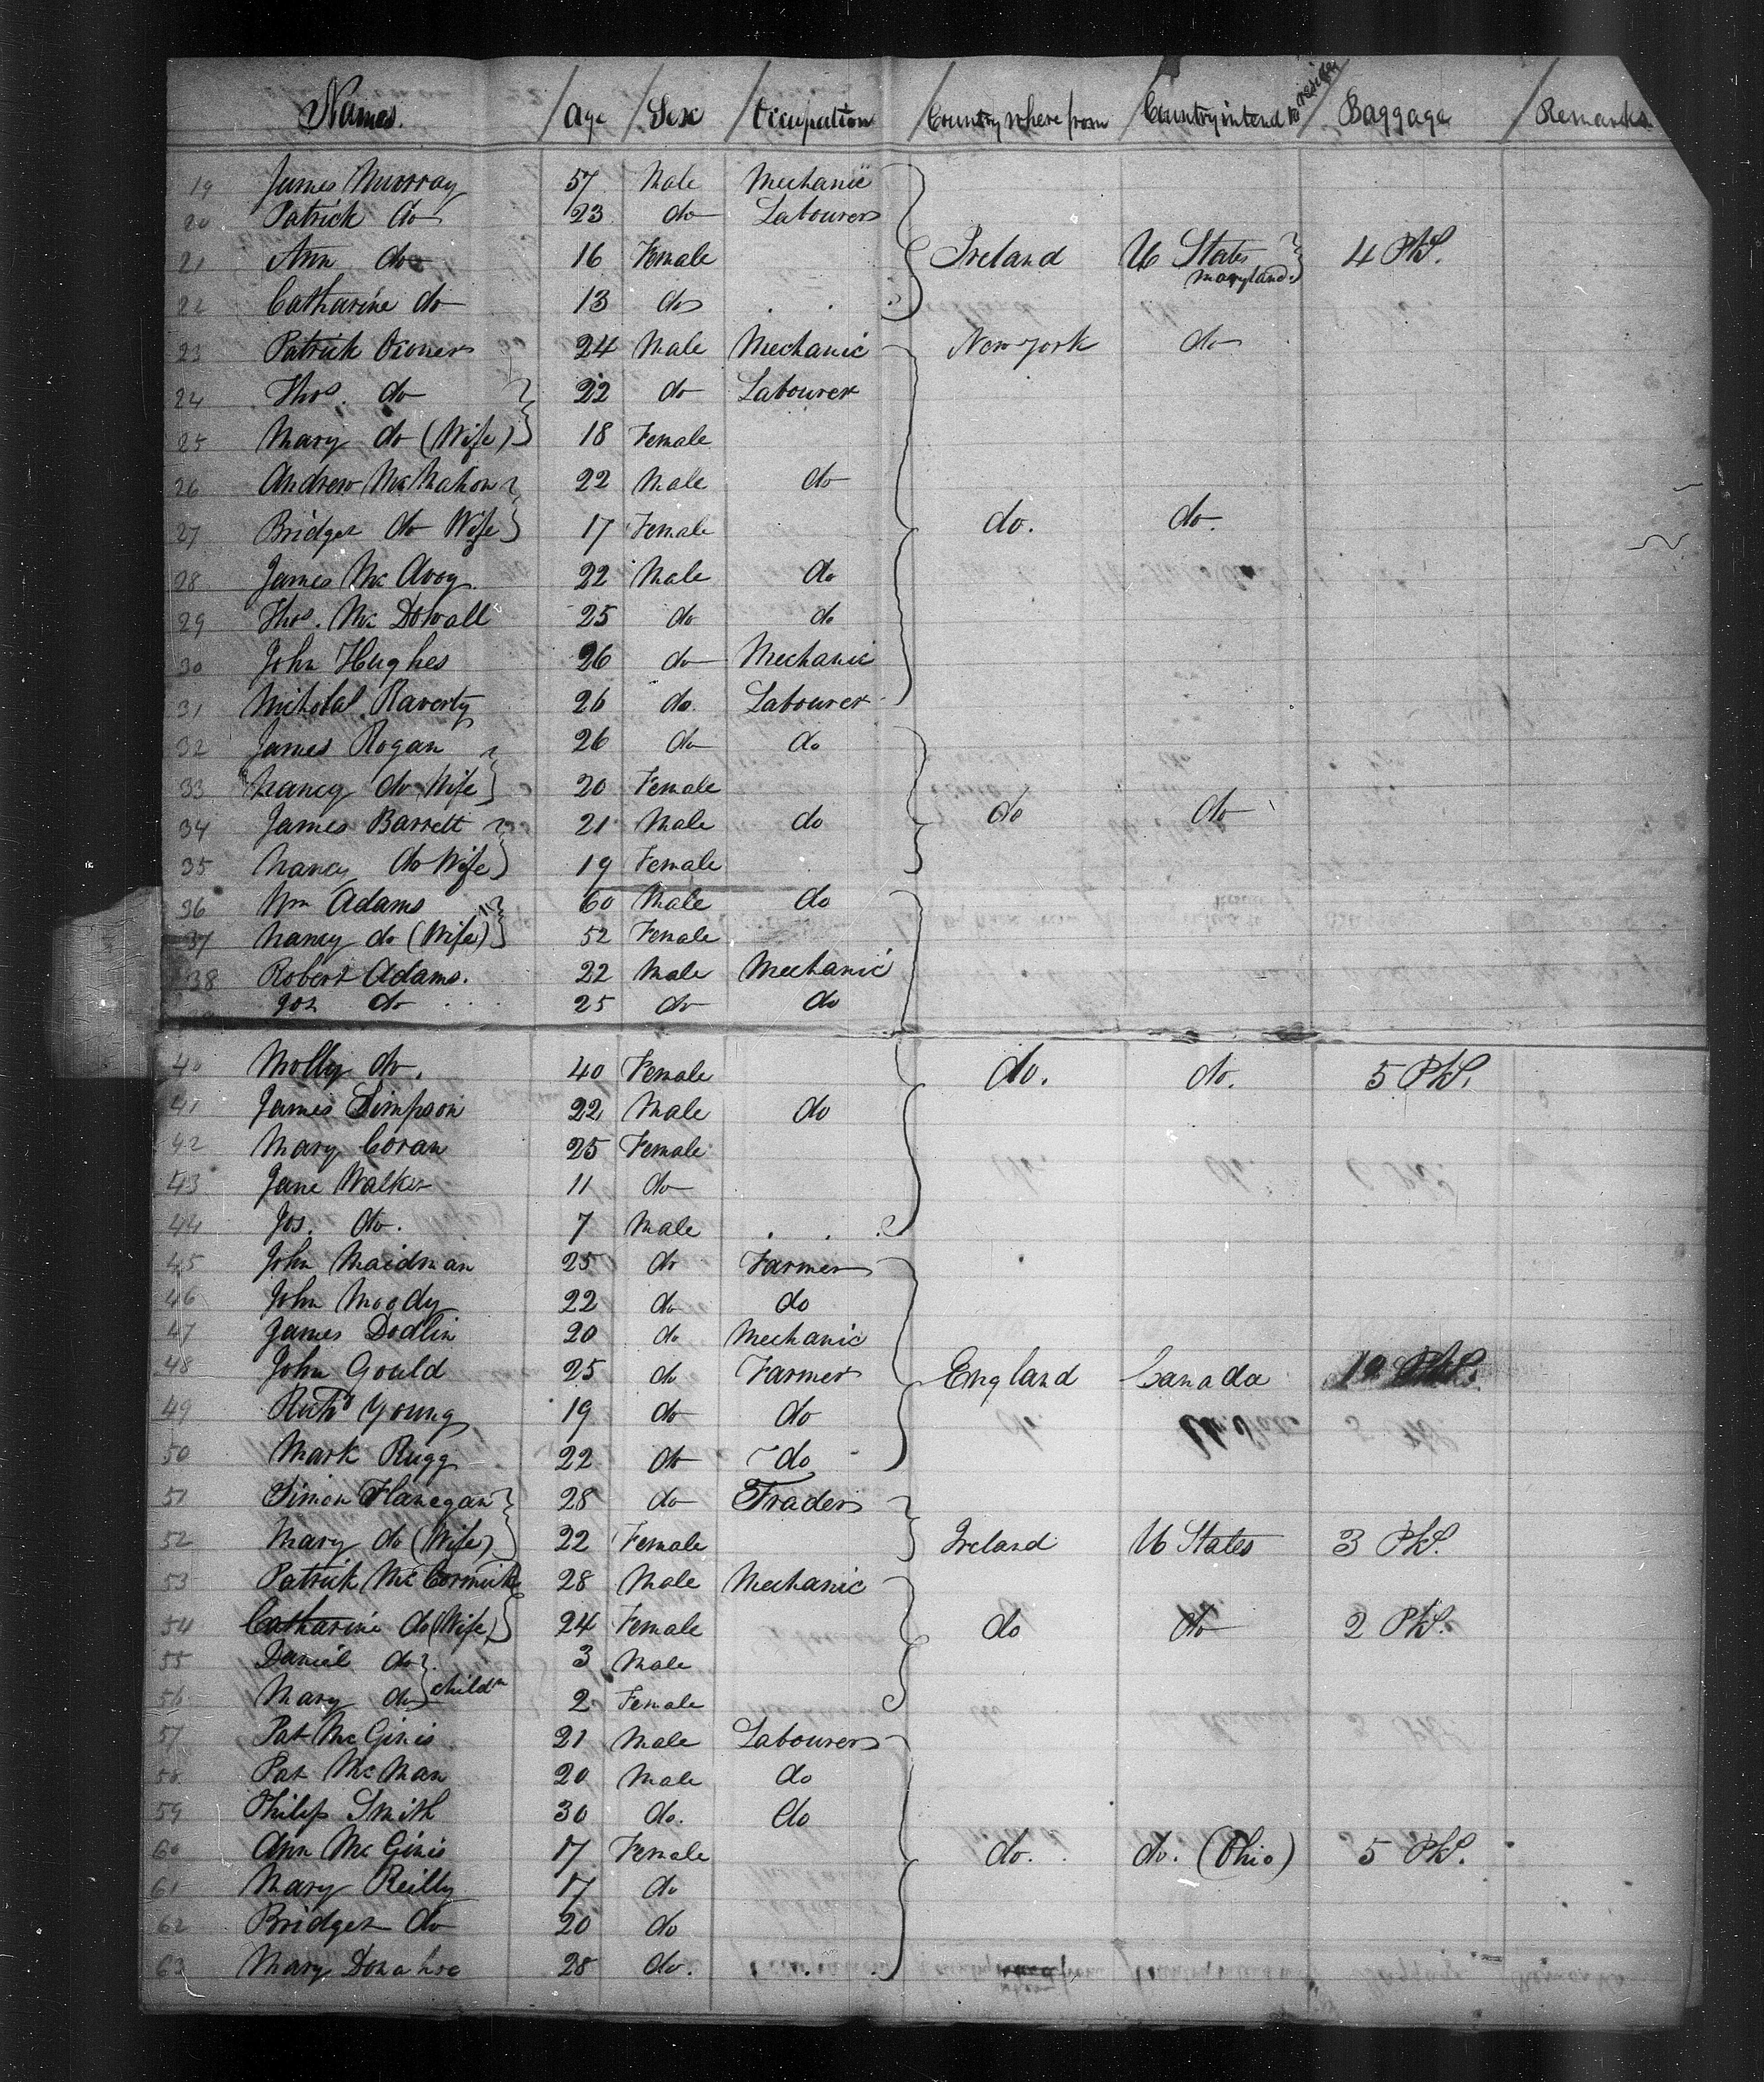 Names. Age Sex Occupation Country where from Country intend to reside Baggage Remarks
19 James Murray 57 Male Mechanic
20 Patrick do 23 do Labourer
21 Ann do 16 Female Ireland U States Maryland 4 Pkl.
22 Catharine do 13 do
23 Patrick 24 Male Mechanic New york do
24 Thos. do 22 do Labourer
25 Mary do (Wife) 18 Female
26 Andrew McMahon 22 Male do
27 Bridget do Wife 17 Female do. do.
28 James Mc Avoy 22 Male do
29 Thos. Mc Dowall 25 do do
30 John Hughes 26 do Mechanic
31 Raverty 26 do. Labourer
32 James Rogan 26 do do
33 Nancy do Wife 20 Female
34 James Barrett 21 Male do do do
35 Nancy do Wife 19 Female
36 Wm Adams 60 Male do
37 Nancy do (Wife) 52 Female
38 Robert Adams. 22 Male Mechanic
Jos do 25 do do
40 Molly do. 40 Female do. do. 5 Pkl.
41 James Simpson 22 Male do
42 Mary Coran 25 Female
43 Jane Walker 11 do
44 Jos. do. 7 Male
45 John Maidman 25 do Farmer
46 John Moody 22 do do
47 James Dodlin 20 do Mechanic
48 John Gould 25 do Farmer England Canada
49 Young 19 do do
50 Mark Rugg 22 do do
51 Simon Flanegan 28 do Trader
52 Mary do (Wife) 22 Female Ireland U States 3 Pkl.
53 Patrick McCormick 28 Male Mechanic
54 Catharine do (Wife) 24 Female do do 2 Pkl.
55 Daniel do 3 Male
56 Mary do childn 2 Female
57 Pat McGinis 21 Male Labourer
58 Pat McMan 20 Male do
59 Philip Smith 30 do. do
60 Ann McGinis 17 Female do. do. (Ohio) 5 Pkl.
61 Mary Reilly 17 do
62 Bridget do 20 do
63 Mary Donahoe 28 do.